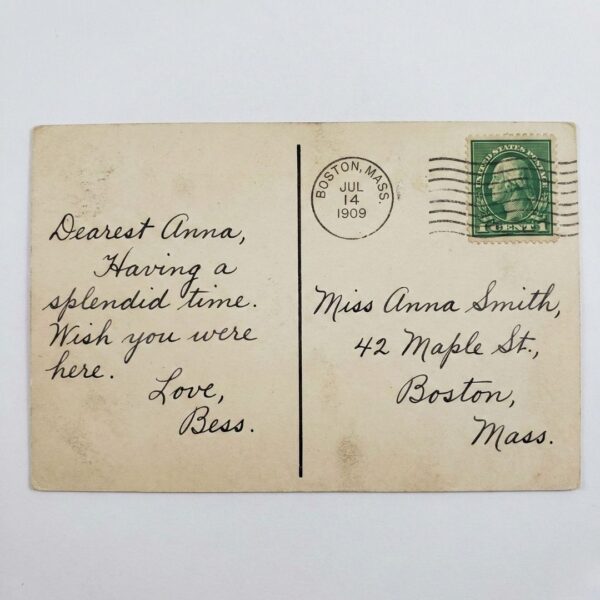 Dearest Anna,
Having a
splendid time.
Wish you were
here.
Love,
Bess.
BOSTON, MASS.
JUL
14
1909
UNITED STATES POSTAGE
CENTS
Miss Anna Smith,
42 Maple St.,
Boston,
Mass.